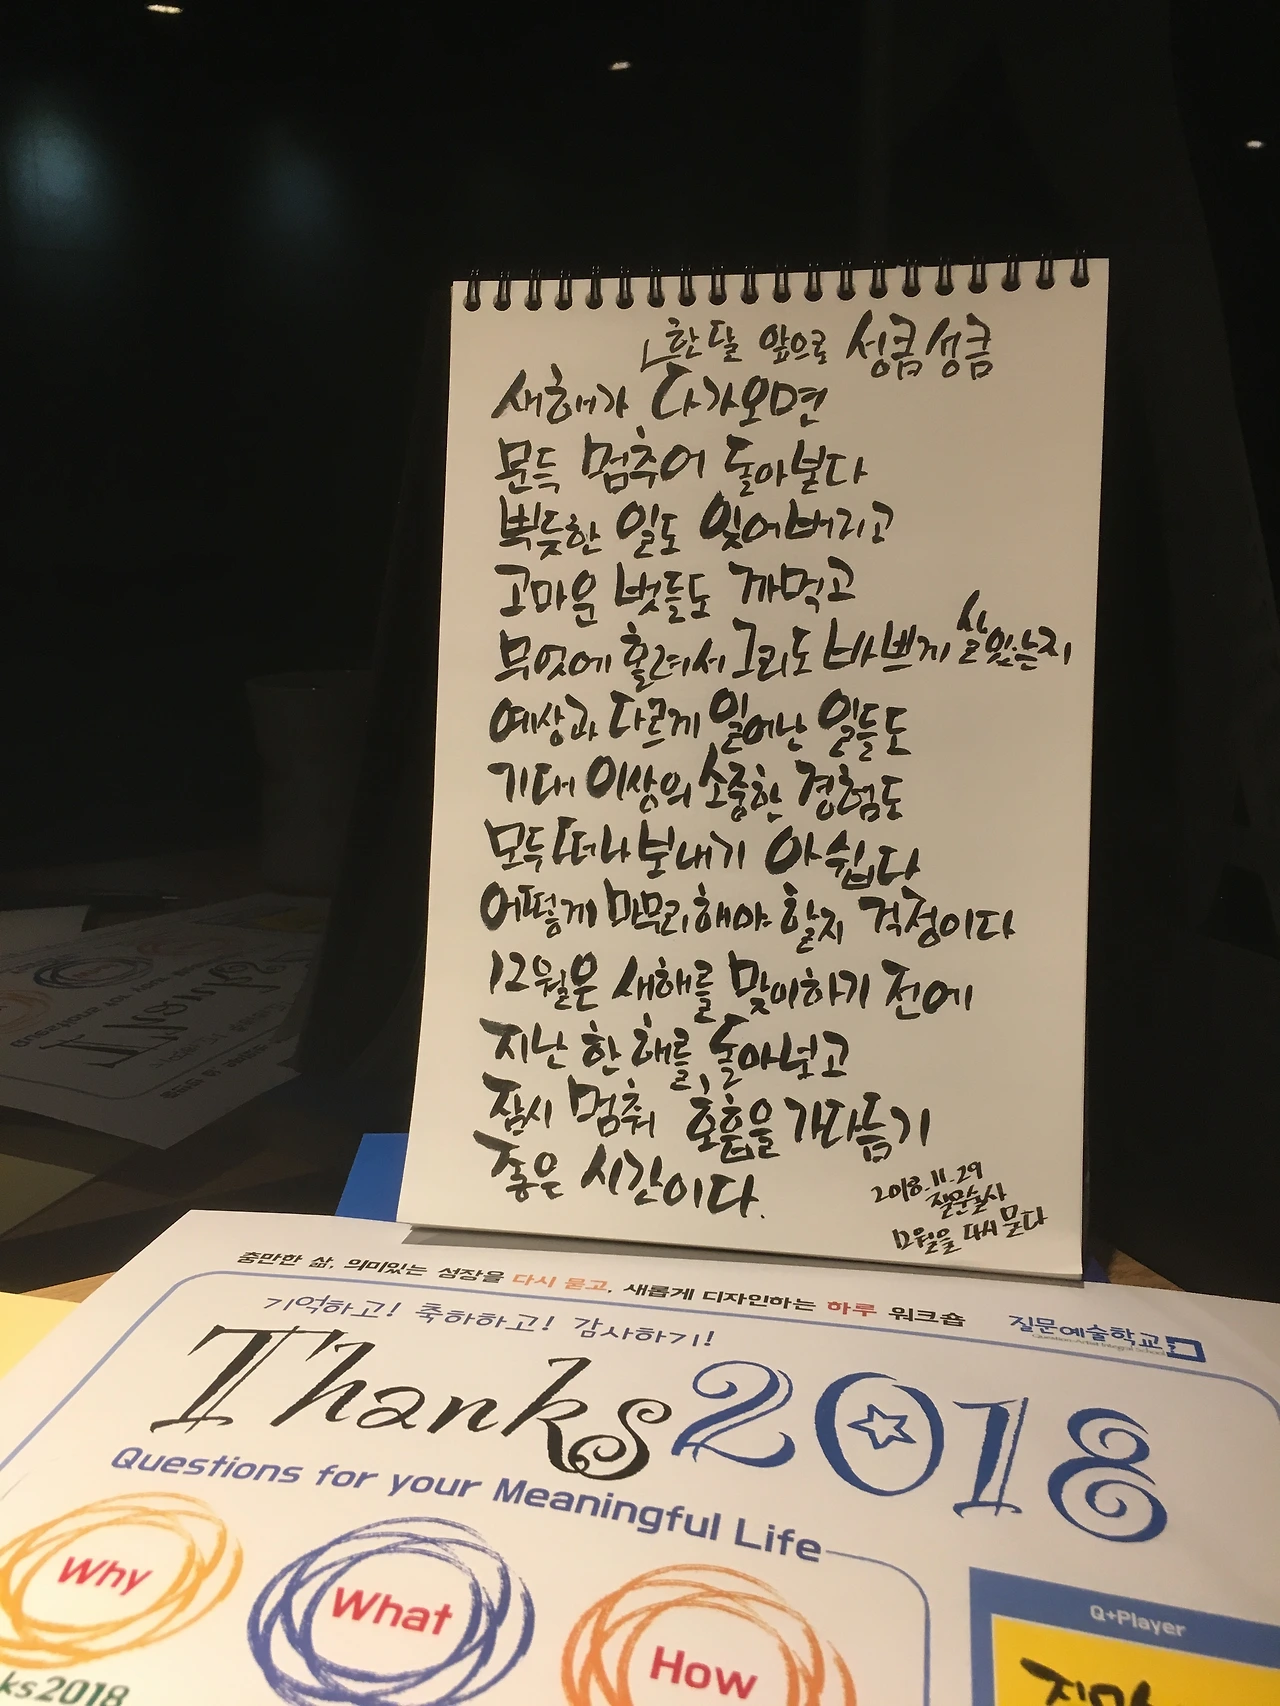 한달 앞으로 성큼성큼
새해가 다가오면
문득 멈추어 돌아본다
뿌듯한 일도 잊어버리고
고마운 벗들도 까먹고
무엇에 홀려서 그리도 바쁘게 살았는지
예상과 다르게 일어난 일들도
기대 이상의 소중한 경험도
모두 떠나보내기 아쉽다
어떻게 마무리해야 할지 걱정이다
12월은 새해를 맞이하기 전에
지난 한 해를 돌아보고
잠시 멈춰 호흡을 가다듬기
좋은 시간이다.
2018.11.29
질문술사
12월을 다시 묻다
충만한 삶, 의미있는 성장을 다시 묻고, 새롭게 디자인하는 하루 워크숍
기억하고! 축하하고! 감사하기!
질문예술학교
Question Artist Integral School
Thanks2018
Questions for your Meaningful Life
Why
What
How
ks2018
Q+Player